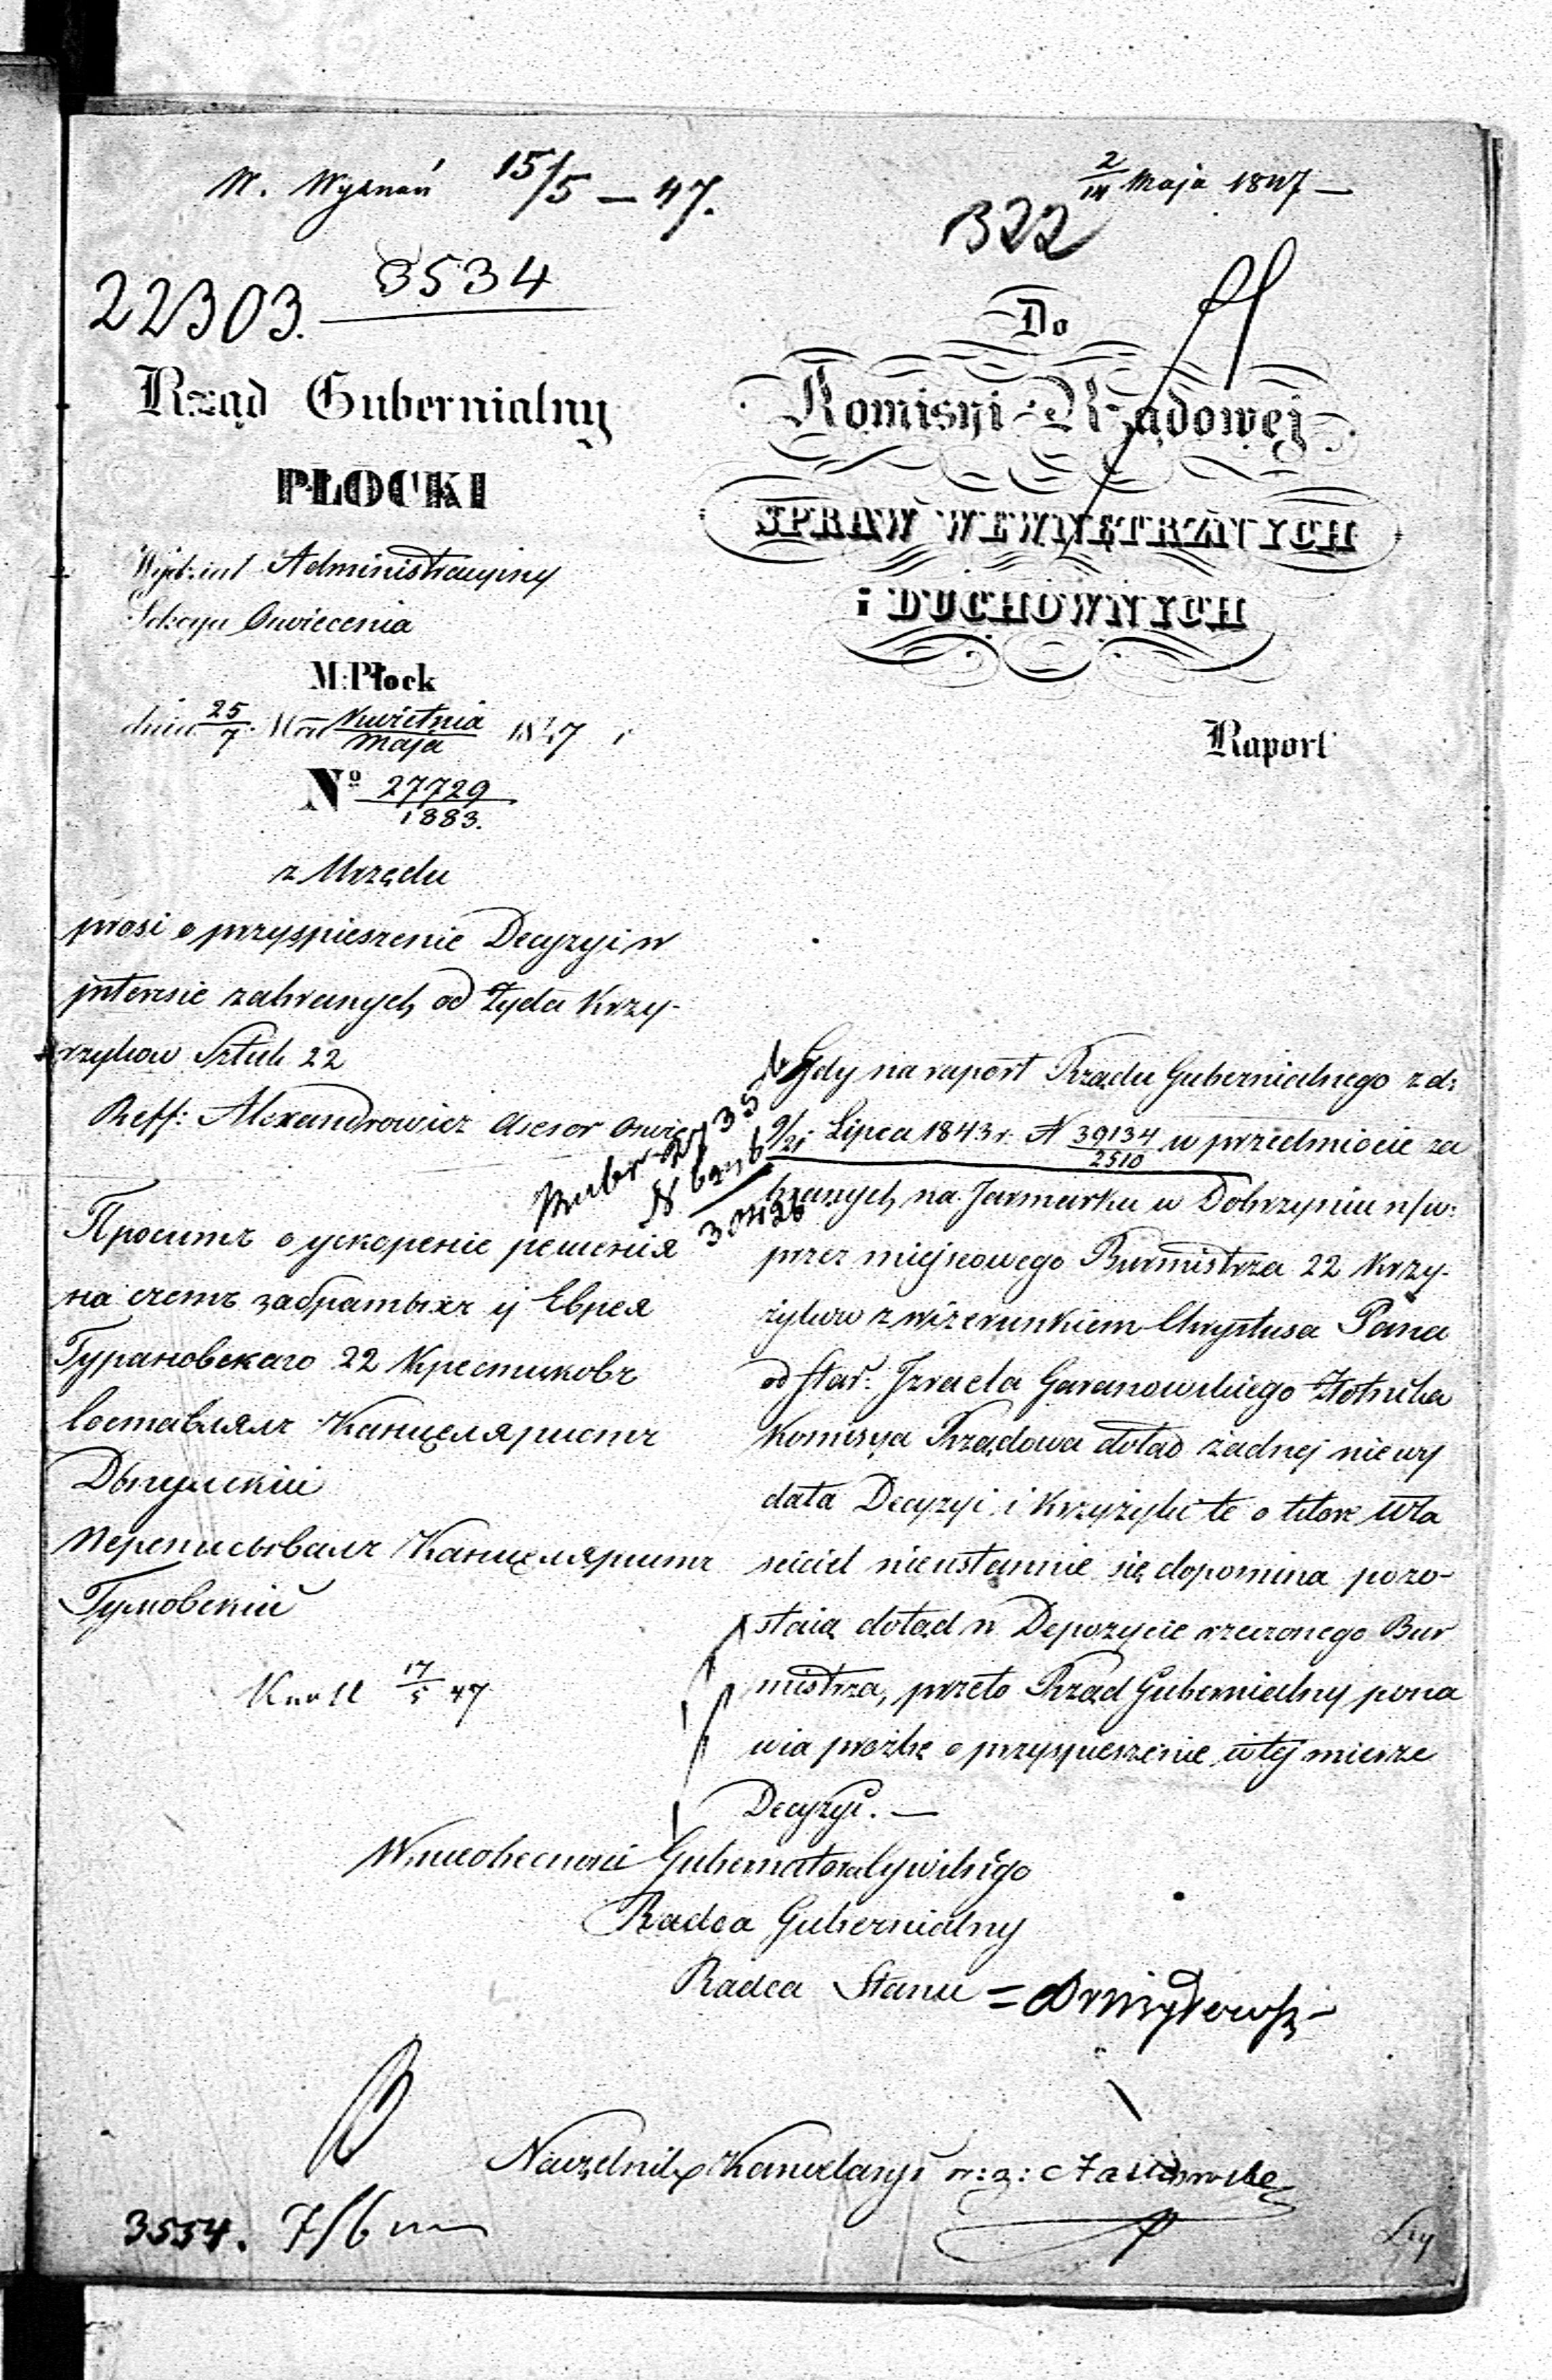 W. Wyznań 15/5 – 47.
2/14 Maja 1847 –
1322
22303. 3534
Rząd Gubernialny
PŁOCKI
Wydział Administracyiny
Sekcya Oswiecenia
M: Płock
dnia 25/7 Mca Kwietnia/Maja 1847 r
Nº 27729/1883.
z Urzędu
prosi o przyspieszenie Decyzyi w
jnteresie zabranych od Żyda Krzy-
żyków Sztuk 22
Reff: Alexandrowicz Asesor
Проситъ о ускореніе решенія
на счетъ забратыхъ у Еврея
Гурановскаго 22 Крестиковъ
Составлялъ Канцеляристъ
Переписывалъ Канцеляристъ
Гумовскій
17/5 47
Do
Komisyi Rządowej
SPRAW WEWNĘTRZNYCH
i DUCHOWNYCH
Raport
Gdy na raport Rządu Gubernialnego z d:
9/21 Lipca 1843 r. N 39134/2510 w przedmiocie za
branych na Jarmarku w Dobrzyniu n/w:
przez miejscowego Burmistrza 22 Krzy-
żyków z wizerunkiem Chrystusa Pana
od Star: Jzraela Garanowskiego Złotnika
Komisya Rządowa dotąd żadnej nie wy
dała Decyzyi i Krzyżyki te o które Wła
sciciel nieustannie się dopomina pozo-
staią dotąd w Depozycie rzeczonego Bur
mistrza, przeto Rząd Gubernialny pona
wia prośbę o przyspieszenie w tej mierze
Decyzyi. –
W nieobecności Gubernatora Cywilnego
Radca Gubernialny
Radca Stanu
Naczelnik Kancelaryi
3554. 7/6